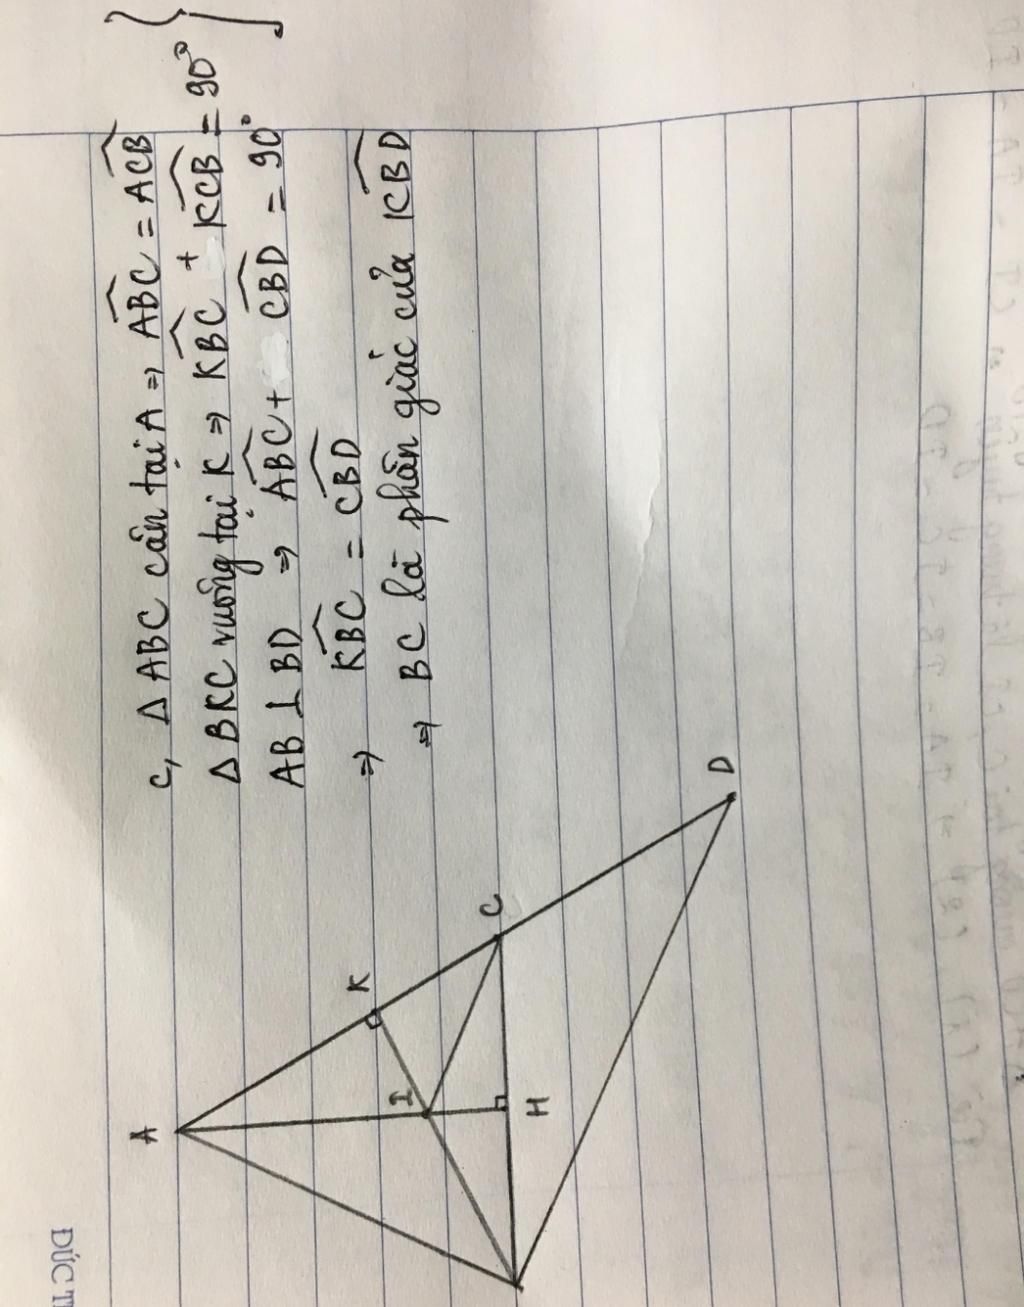 c, Δ ABC cân tại A ⇒ \widehat{ABC} = \widehat{ACB}
Δ BKC vuông tại K ⇒ \widehat{KBC} + \widehat{KCB} = 90°
AB ⊥ BD ⇒ \widehat{ABC} + \widehat{CBD} = 90°
⇒ \widehat{KBC} = \widehat{CBD}
⇒ BC là phân giác của \widehat{KBD}
A
K
I
C
H
D
ĐỨC